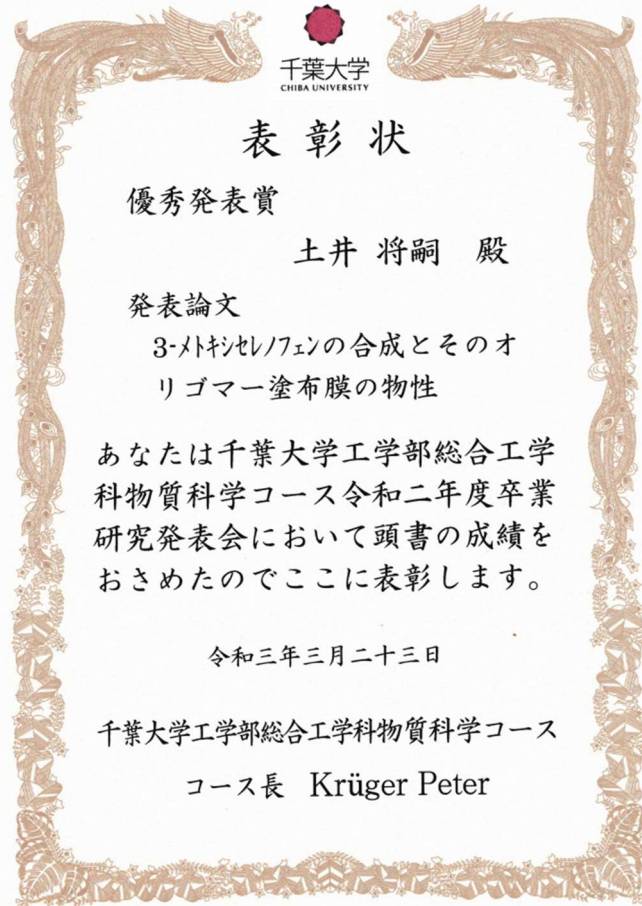 千葉大学
CHIBA UNIVERSITY
表彰状
優秀発表賞
土井 将嗣 殿
発表論文
3-ﾒﾄｷｼｾﾚﾉﾌｪﾝの合成とそのオ
リゴマー塗布膜の物性
あなたは千葉大学工学部総合工学
科物質科学コース令和二年度卒業
研究発表会において頭書の成績を
おさめたのでここに表彰します。
令和三年三月二十三日
千葉大学工学部総合工学科物質科学コース
コース長 Krüger Peter